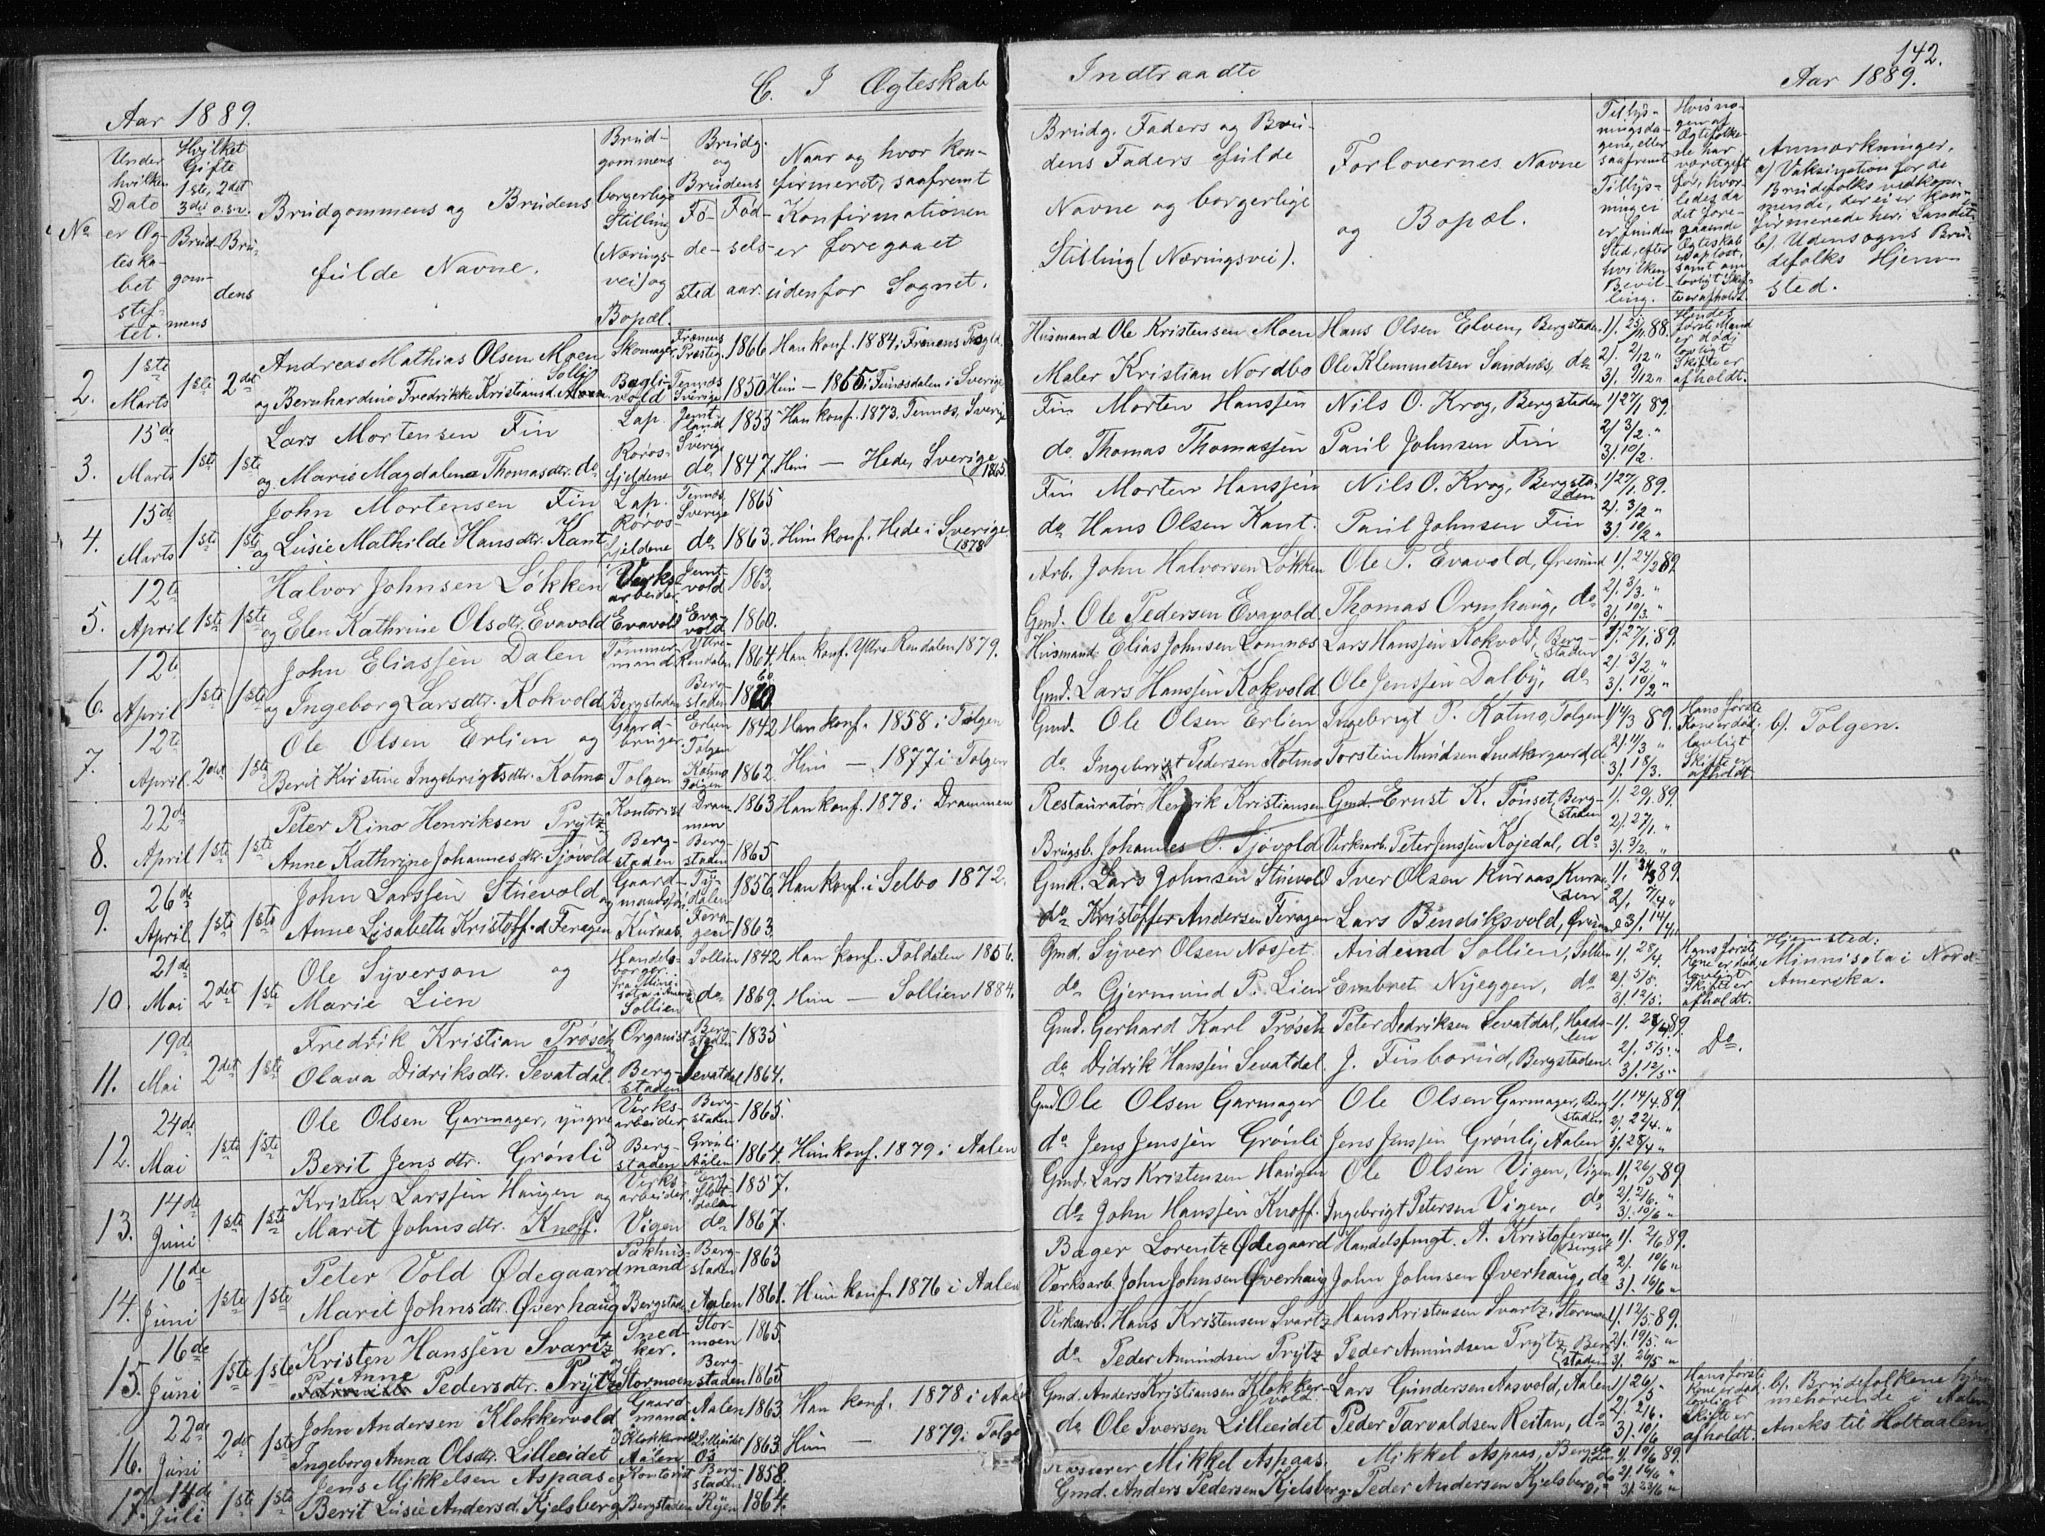 142.
C. I Ægteskab Indtraadte
Aar 1889. Aar 1889.
No
Under hvilken Dato er Ægteskabet stiftet.
Hvilket Gifte 1ste, 2det 3die o.s.v.
Brudgommens
Brudens
Brudgommens og Brudens fulde Navne.
Brudgommens borgerlige Stilling (Næringsvei) og Bopæl.
Brudg. og Brudens
Fødested
Fødselsaar.
Naar og hvor konfirmeret, saafremt Konfirmationen er foregaaet udenfor Sognet.
Brudg. Faders og Brudens Faders fulde Navne og borgerlige Stilling (Næringsvei).
Forlovernes Navne og Bopæl.
Tillysningsdagene, eller saafremt Tillysning ei er funden Sted, efter hvilken Bevilling.
Hvis nogen af Ægtefolkene har været gift før, hvorledes da det foregaaende Ægteskab er opløst, samt om lovligt Skifte er afholdt.
Anmærkninger, a) Vaksination for de Brudefolks vedkommende, der ei er konfirmerede her i Landet. b). Udensogns Brudefolks Hjemsted.
2. 1ste Marts 1ste 2det Andreas Mathias Olsen Moen Skomager Præstig. 1866 Han konf. 1884 i
og Bernhardine Fredrikke Kristiansd. Bagli-vold Tennæs Sverige 1850 Hun — 1865 i Funæsdalen i Sverige
Husmand Ole Kristensen Moen Hans Olsen Elven, Bergstaden 1). 88.
Maler Kristian Nordbo Ole Klemmetsen Sandnæs, do 2). 2/12 " 3). 9/12 "
Hendes første Mand er død, lovligt Skifte er afholdt.
3. 15de Marts 1ste 1ste Lars Mortensen Fin Lap. Jemtland Sverige 1855 Han konf. 1873. Tennæs, Sverige
og Marie Magdalena Thomasdtr. do Røros-fjeldene do. 1847. Hun — Hede, Sverige (1865
Fin Morten Hanssen Nils O. Krog, Bergstaden 1) 27/1 89.
do. Thomas Thomassen Paul Johnsen Fin 2) 3/2. " 3). 10/2.
4. 15de Marts 1ste 1ste John Mortensen Fin Lap. Tennæs, Sverige 1865
og Lusie Mathilde Hansdtr. Kant Røros-fjeldene do 1863. Hun konf. Hede i Sverige (1878
Fin Morten Hanssen Nils O. Krog, Bergstaden 1) 27/1. 89.
do Hans Olsen Kant. Paul Johnsen Fin 2). 3/2 " 3). 10/2 "
5. 12te April 1ste 1ste Halvor Johnsen Løkken Verks-arbeider Jemtvold 1863.
og Elen Kathrine Olsdtr. Evavold Evavold Evavold 1860.
Arb. John Halvorsen Løkken Ole P. Evavold, Øresund 1). 24/2 89.
Gmd. Ole Pedersen Evavold. Thomas Ormhaug, do 2). 3/3. " 3). 10/3. "
6. 12te April 1ste 1ste John Eliassen Dalen Tømmermand Yttre-Rendalen 1864. Han konf. Yttre Rendalen 1879.
og Ingeborg Larsdtr. Kokvold Bergstaden Bergstaden
Husmand Elias Johnsen Lomnæs Lars Hanssen Kokvold, Bergstaden 1). 27/1. 89.
Gmd. Lars Hanssen Kokvold. Ole Jenssen Dalby, do 2). 3/2 " 3). 10/2 "
7. 12te April. 2det 1ste Ole Olsen Erlien og Gaardbruger. Erlien Tolgen 1842 Han konf. 1858 i Tolgen
Berit Kirstine Ingebrigtsdtr. Kotmo Tolgen Kotmo Tolgen 1862. Hun — 1877 i Tolgen
Gmd. Ole Olsen Erlien Ingebrigt P. Kotmo, Tolgen 1) 89.
do. Ingebrigt Pedersen Kotmo Torstein Knudsen Snedkergaard, do 2). 11/3 " 3). 18/3.
Hans første Kone er død; lovligt Skifte er afholdt.
b). Tolgen.
8. 22de April 1ste 1ste Peter Rino Henriksen Prytz Kontorist Drammen 1863 Han konf. 1878. i Drammen
Anne Kathrine Johannesdtr. Sjøvold Bergstaden Bergstaden 1865
Restauratør. Henrik Kristiansen Gmd. Ernst K. Tønset, Bergstaden 1). 20/1. 89.
Brugsb. Johannes O. Sjøvold Verksarb. Peter Jenssen Kojedal, do 2). 27/1. " 3). 3/2. "
9. 26de April. 1ste 1ste John Larssen Stuevold og Gaardmandssøn Tydalen 1856. Han konf. i Selbo 1872.
Anne Lisabeth Kristoff.d Feragen Kuraas. Feragen 1863.
Gmd. Lars Johnsen Stuevold Iver Olsen Kuraas, 1). 89.
do Kristoffer Andersen Feragen Lars Bendiksvold, 2). 7/4 " 3). 14/4.
10. 21de Mai 2det 1ste Ole Syverson og Handelsborger Sollien 1842 Han konf. Foldalen 1856.
Marie Lien Sollien do. 1869. Hun — Sollien 1884.
Gmd. Syver Olsen Nosset. Sollien, Sollien 1). 28/4.
do Gjermund P. Lien Embret Nyeggen, do 2). 5/5. 3). 12/5.
Hans første Kone er død, lovligt Skifte er afholdt.
Hjemsted: Minnisota i Nord-Amerika.
11. 19de Mai 2det 1ste Fredrik Kristian Prøsch Organist Bergstaden 1835
Olava Didriksdtr. Sevatdal. Bergstaden Sevatdal 1864.
Gmd. Gerhard Karl Prøsch Peter Dedriksen Sevatdal, 1). 89.
do Didrik Hanssen Sevatdal. J. Finborud, Bergstaden. 2). 5/5. " 3). 12/5 "
Do.
12. 24de Mai 1ste 1ste Ole Olsen Garmager, yngre Verksarbeider. Bergstaden 1865.
Berit Jensdtr. Grønli Bergstaden Grønli Aalen 1864. Hun konf. 1879 i Aalen
Gmd. Ole Olsen Garmager Ole Olsen Garmager, Bergstaden 1). 14/4. 89.
do. Jens Jenssen Grønli Jens Jenssen Grønli, Aalen 2). 22/4. " 3). 28/4 "
13. 14de Juni 1ste 1ste Kristen Larssen Haugen og Verksarbeider. 1857.
Marit Johnsdtr. Knoff. Vigen do 1867.
Gmd. Lars Kristensen Haugen Ole Olsen Vigen, Vigen 1). 26/5 89.
do. John Hanssen Knoff. Ingebrigt Petersen Vigen, do. 2). 2/6. " 3). 10/6 "
14. 16de Juni 1ste 1ste Peter Vold Ødegaard Pakhusmand Bergstaden 1863
Marit Johnsdtr. Øverhaug Bergstaden Aalen 1861. Hun konf. 1876 i Aalen
Bager Lorentz Ødegaard Handelsfuldmgt. A. Kristofersen, Bergst. 1). 2/6 89.
Verksarb. John Johnsen Øverhaug John Johnsen Øverhaug, do 2). 10/6 " 3). 16/6 "
15. 16de Juni 1ste 1ste Kristen Hanssen Svartz Snedker. Stormoen 1865.
Anne Pedersdtr. Prytz Stormoen Bergstaden 1865
Verksarb. Hans Kristensen Svartz Hans Kristensen Svartz, Stormoen 1). 12/5. 89.
do Peder Amundsen Prytz Peder Amundsen Prytz, Bergstaden 2). 19/5. " 3). 26/5 "
16. 22de Juni 2det 1ste John Andersen Klokkervold Gaardmand. Aalen 1863. Han konf. 1878 i Aalen
Ingeborg Anna Olsdtr. Lilleeidet Klokkervold Aalen Lilleeidet Os 1863. Hun — 1879 i
Gmd. Anders Kristiansen Klokkervold. Lars Gundersen Aasvold, Aalen 1). 26/5
do. Ole Iversen Lilleeidet Peder Tarvaldsen Reitan, do 2). 2/6. 3). 10/6
Hans første Kone er død. lovligt Skifte er afholdt.
b). Brudefolkene hjemmehørende i Aalen Aneks til Holtaalen
17. 14de Juli 1ste 1ste Jens Mikkelsen Aspaas og Kontorist Bergstaden 1858.
Berit Lusie Andersd. Kjelsberg Bergstaden Ryen 1864.
Mikkel Aspaas. Mikkel Aspaas, Bergstaden 1) 10/6 89.
Gmd. Anders Pedersen Kjelsberg. Peder Andersen Kjelsberg, do 2). 16/6 " 3). 23/6 "